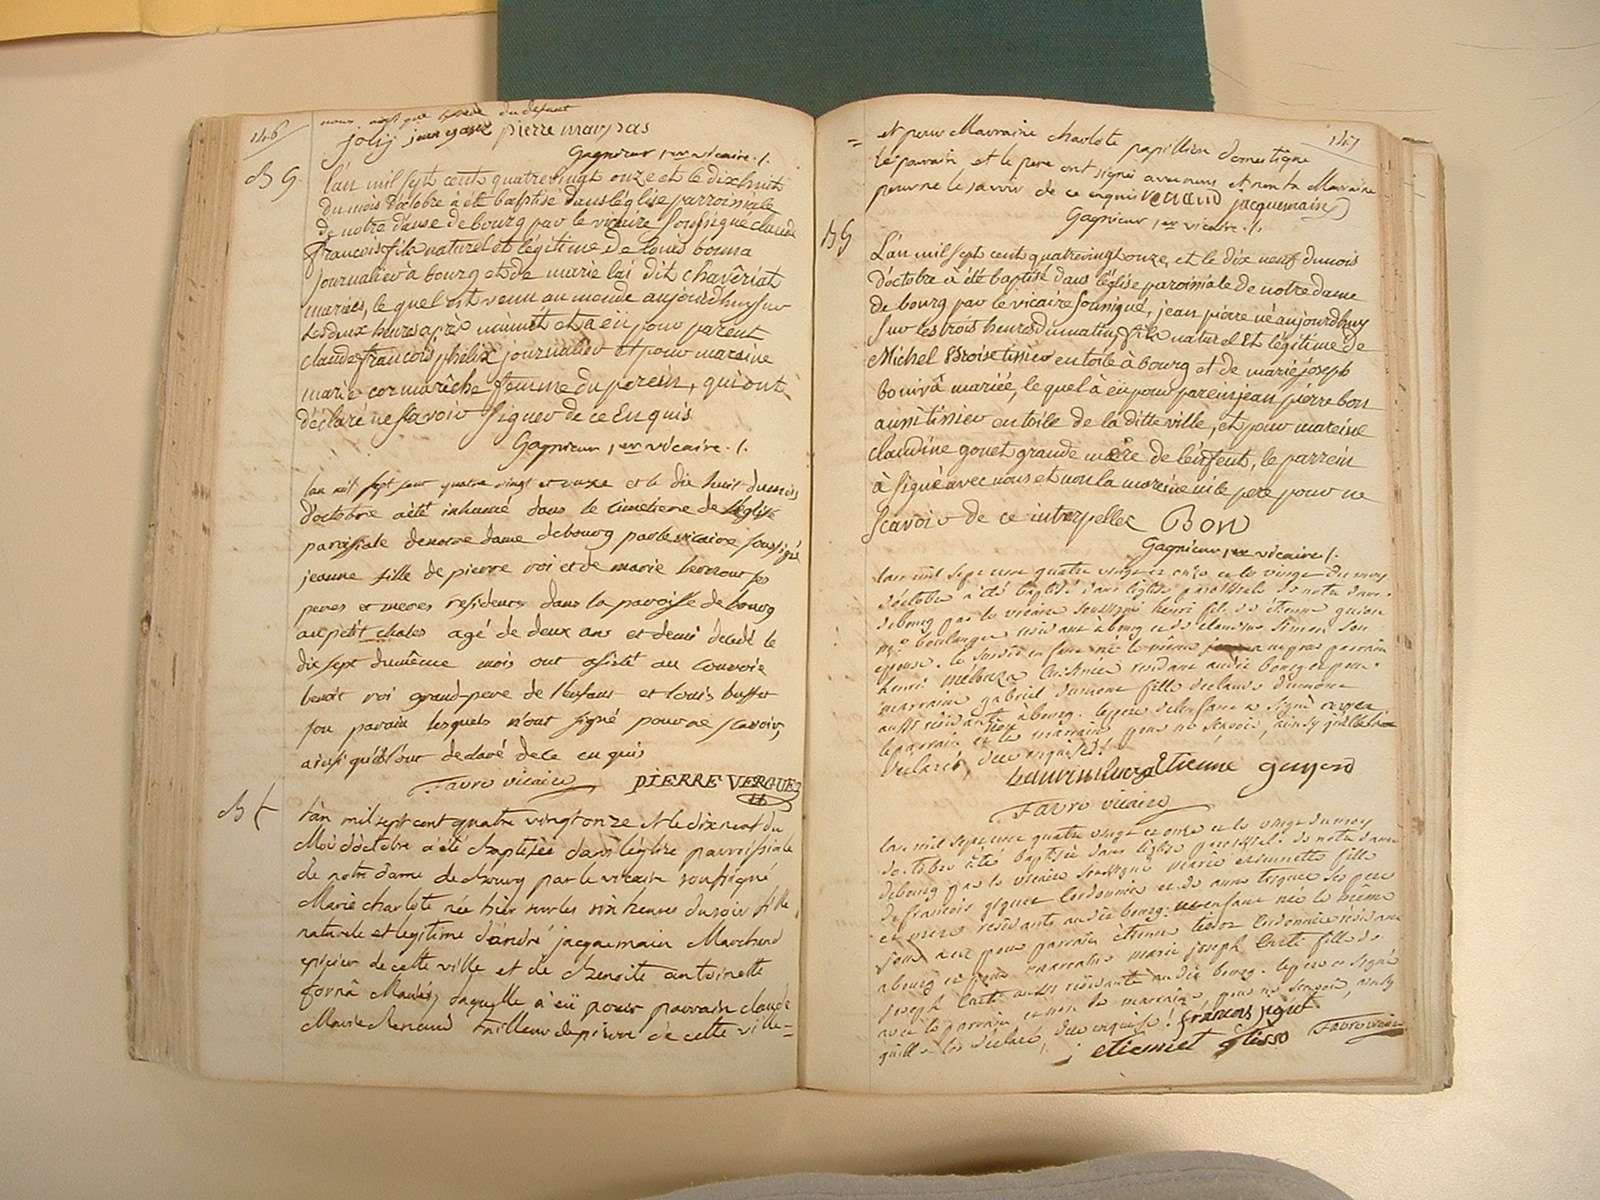 146
joly pierre maupas
Gagnieur 1er vicaire ./.
BG
L'an mil sept cent quatrevingt onze et le dixhuit
du mois d'octobre a été baptisé dans l'eglise parroissiale
de notre dame de bourg par le vicaire soussigné claude
francois fils naturel et légitime de louis bonna
journalier à bourg et de marie lai dit chavêriat
mariés, le quel est venu au monde aujourdhuy sur
les deux heures après minuit et a eü pour parent
claude francois phelix journalier et pour maraine
marie cormarêche femme du parein, qui ont
déclaré ne scavoir signer de ce enquis
Gagnieur 1er vicaire ./.
lan mil sept cent quatre vingt et onze et le dix huit du mois
d'octobre a été inhumé dans le cimetiere de l'églis
paroissiale de notre dame de bourg par le vicaire soussigné
jeanne fille de pierre roi et de marie ses
peres et meres résidents dans la paroisse de bourg
au petit chales agé de deux ans et demi décédé le
dix sept du même mois ont assisté au convoie
benoit roi grand-pere de l'enfant et louis buffet
son parain lesquels n'ont signé pour ne scavoir,
ainsi qu'ils ont déclaré de ce enquis
Favre vicaire PIERRE VERGUET
B f
L'an mil sept cent quatre vingt onze et le dix neuf du
Mois d'octobre a été Baptisée dans l'eglise parroissiale
de notre dame de Bourg par le vicaire soussigné
Marie charlote née hier sur les six heures du soir fille
naturele et legitime d'andré jacquemain Marchand
epicier de cette ville et de Benoite antoinette
fornâ Mariés, laquelle a eü pour parrain claude
Marie Renaud tailleur de pierre de cette ville =
147
= et pour Marraine charlote papillion domestique
le parrain et le pere ont signé avec nous et non la Marraine
pour ne le savoir de ce enquis renaud jacquemain
Gagnieur 1er vicaire ./.
BG
L'an mil sept cent quatrevingt onze, et le dix neuf du mois
d'octobre à été baptisé dans l'église paroissiale de notre dame
de bourg par le vicaire soussigné, jean pierre né aujourdhuy
sur les trois heures du matin, fils naturel et légitime de
Michel Broise tissier en toile à bourg et de marie jóseph
bourrâ mariée, le quel à eü pour parein jean piérre bon
aussi tissier en toile de la ditte ville, et pour mareine
claudine gouet grande mère de l'enfent, le parrein
à signé avec nous et non la mareine ni le pere pour ne
scavoir de ce interpellé Bon
Gagnieur 1er vicaire ./.
lan mil sept cent quatre vingt et onze et le vingt du mois
d'octobre a été baptisé dans l'église paroissiale de notre dame
de bourg par le vicaire soussigné henri fils de etienne guion
me boulanger résidant à bourg et de claudine simon son
epouse. le susdit enfant né le même jour a eu pour parrain
henri résidant audit bourg et pour
marraine gabriel dumont fille de claude dumont
aussi résidante à bourg. le pere de l'enfant a signé
le parrain et la marraine pour ne scavoir, ainsy qu'elle l'a
déclaré, de ce enquise !
Etienne guyon
Favre vicaire
lan mil sept cent quatre vingt et onze et le vingt du mois
d'octobre a été baptisée dans l'église paroissiale de notre dame
de bourg par le vicaire soussigné marie etiennette fille
de francois giguet cordonnier et de anne ses pere
et mere résidants audit bourg. enfant née le même
jour a eu pour parrain etienne cordonnier résidant
a bourg et pour marraine marie joseph fille de
joseph aussi résidante audit bourg. le pere a signé
avec le parrain et non la marraine pour ne scavoir, ainsy
qu'elle l'a déclaré, de ce enquise ! françois giguet
etiennet tisso Favre vicaire